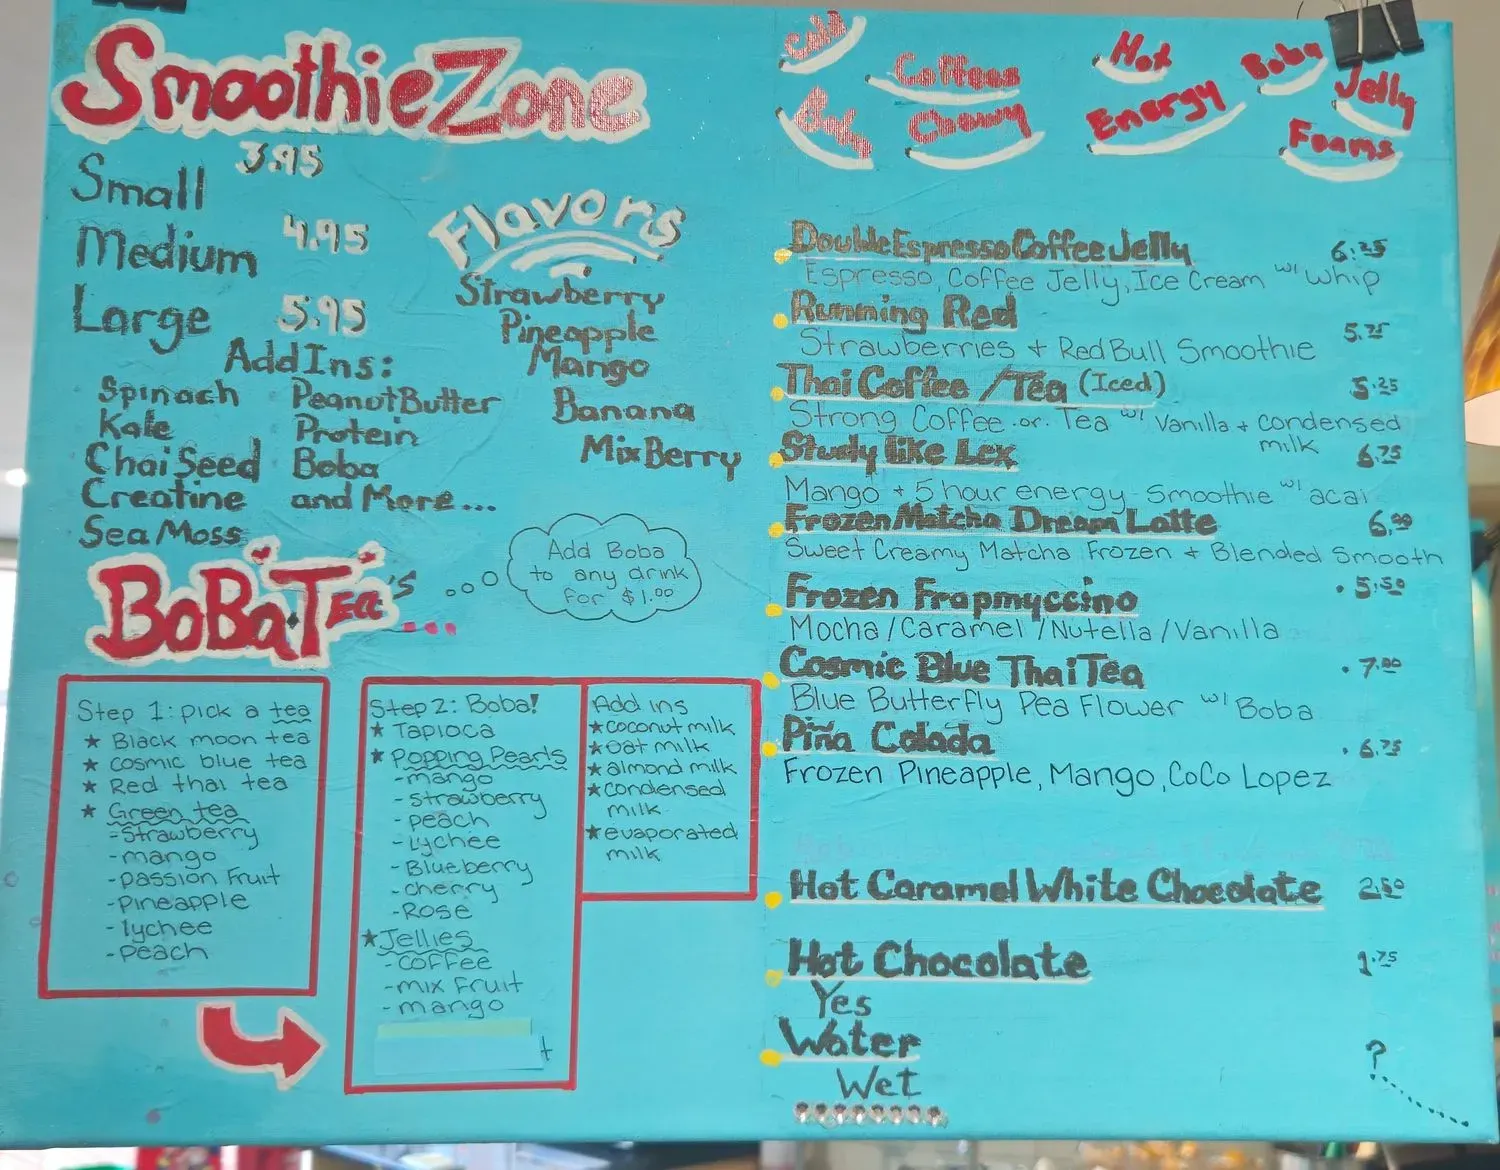 SmoothieZone
Small 3.95
Medium 4.95
Large 5.95
Flavors
Strawberry
Pineapple
Mango
Banana
MixBerry
AddIns:
Spinach PeanutButter
Kale Protein
Chai Seed Boba
Creatine and More...
Sea Moss
BoBa·Tea's...
Add Boba
to any drink
for $1.00
Step 1: pick a tea
★ Black moon tea
★ cosmic blue tea
★ Red thai tea
★ Green tea
-Strawberry
-mango
-passion Fruit
-pineapple
-lychee
-peach
Step 2: Boba!
★ Tapioca
★ Popping Pearls
-mango
-strawberry
-peach
-Lychee
-Blueberry
-cherry
-Rose
★ Jellies
-coffee
-mix Fruit
-mango
Add ins
★coconut milk
★oat milk
★almond milk
★condensed
milk
★evaporated
milk
Coffees Hot Boba
Jelly
Chewy Energy
Foams
DoubleEspressoCoffeeJelly 6.25
Espresso, Coffee Jelly, Ice Cream w/ whip
Running Red 5.75
Strawberries + RedBull Smoothie
Thai Coffee /Tea (Iced) 5.25
Strong Coffee or Tea w/ Vanilla + condensed
milk
Study like Lex 6.75
Mango + 5 hour energy - Smoothie w/ acai
Frozen Matcha Dream Latte 6.00
Sweet Creamy Matcha Frozen + Blended Smooth
Frozen Frapmyccino .5.50
Mocha/Caramel/Nutella/Vanilla
Cosmic Blue Thai Tea .7.00
Blue Butterfly Pea Flower w/ Boba
Piña Colada .6.75
Frozen Pineapple, Mango, CoCo Lopez
Hot Caramel White Chocolate 2.50
Hot Chocolate 1.75
Yes
Water ?
Wet